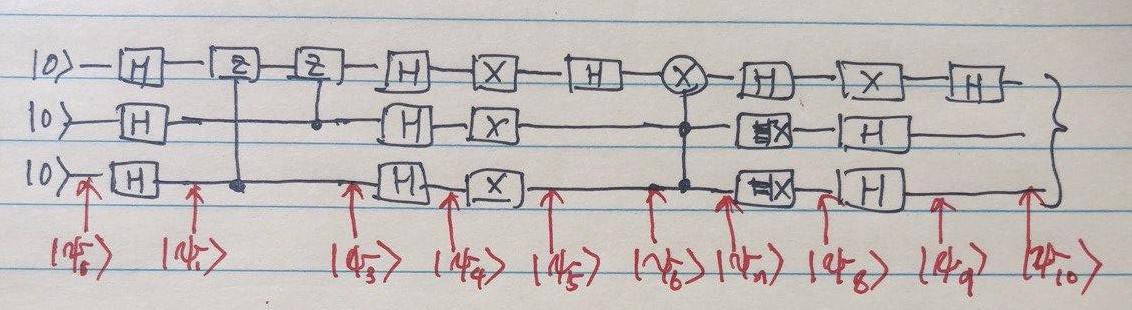 |0⟩ H Z Z H X H X H X H
|0⟩ H H X X H
|0⟩ H H X X H
|ψ₀⟩ |ψ₁⟩ |ψ₃⟩ |ψ₄⟩ |ψ₅⟩ |ψ₆⟩ |ψ₇⟩ |ψ₈⟩ |ψ₉⟩ |ψ₁₀⟩